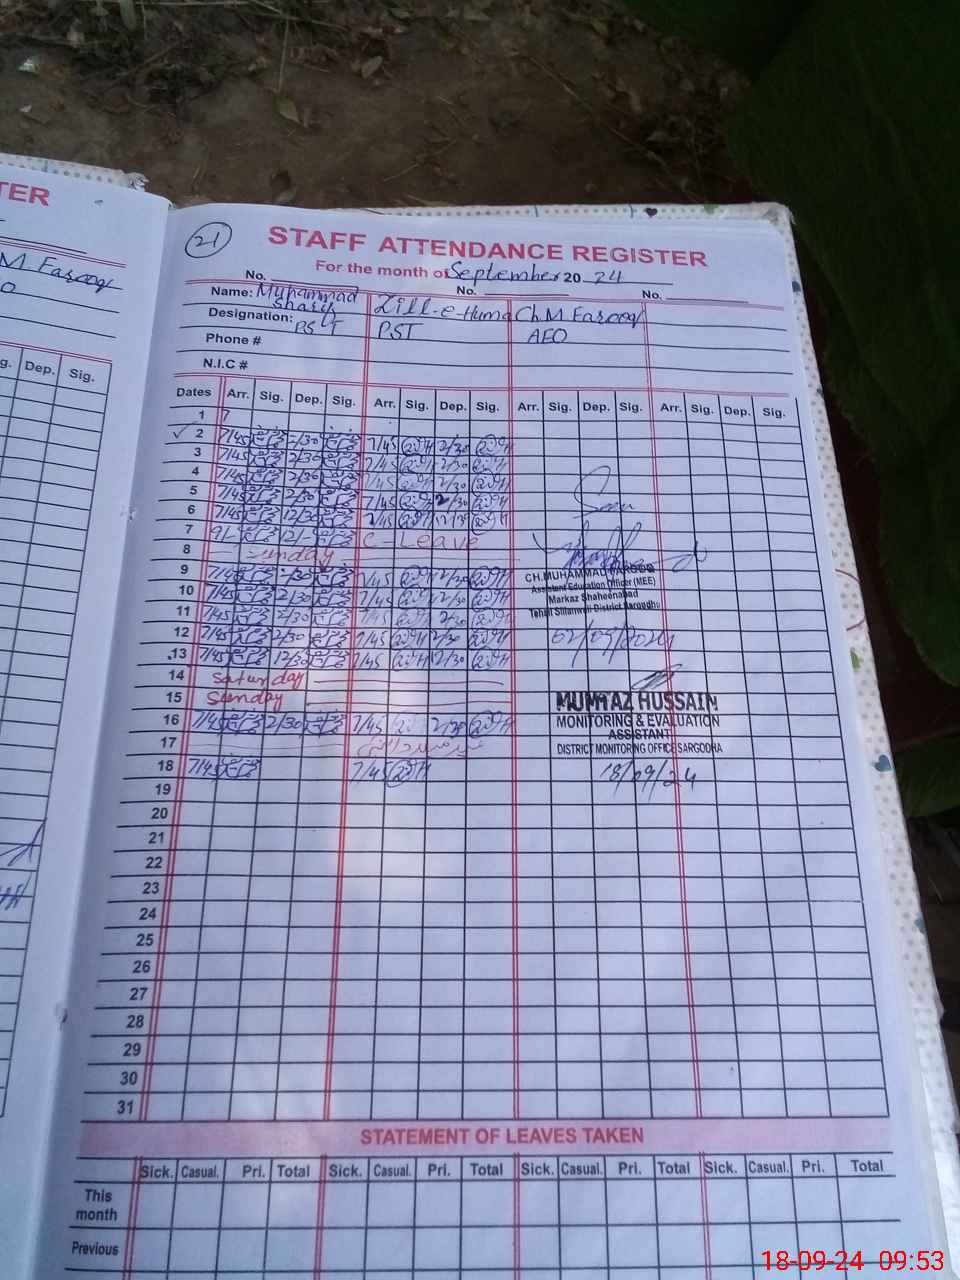 TER
M Farooq
o
g. Dep. Sig.
21
STAFF ATTENDANCE REGISTER
For the month of September 20 24
No. No. No.
Name: Muhammad Sharif Zill-e-Huma Ch M Farooq
Designation: PST PST AEO
Phone #
N.I.C #
Dates Arr. Sig. Dep. Sig. Arr. Sig. Dep. Sig. Arr. Sig. Dep. Sig. Arr. Sig. Dep. Sig.
1 7
2 7/45 2/30 7/45 2/30
3 7/45 2/30 7/45 2/30
4 7/45 2/30 7/45 2/30
5 7/45 2/30 7/45 2/30
6 7/45 12/30 7/45 12/30
7 9/- 12/- C-Leave
8 Sunday
9 7/45 2/30 7/45 2/30
10 7/45 2/30 7/45 2/30
11 7/45 2/30 7/45 2/30
12 7/45 2/30 7/45 2/30
13 7/45 12/30 7/45 12/30
14 Saturday
15 Sunday
16 7/45 2/30 7/45 2/30
17
18 7/45 7/45
CH.MUHAMMAD FAROOQ
Assistant Education Officer (MEE)
Markaz Shaheenabad
Tehsil Sillanwali District Sargodha
02/09/2024
MUMTAZ HUSSAIN
MONITORING & EVALUATION
ASSISTANT
DISTRICT MONITORING OFFICE SARGODHA
18/09/24
19
20
21
22
23
24
25
26
27
28
29
30
31
STATEMENT OF LEAVES TAKEN
Sick. Casual. Pri. Total Sick. Casual. Pri. Total Sick. Casual. Pri. Total Sick. Casual. Pri. Total
This month
Previous
18-09-24 09:53